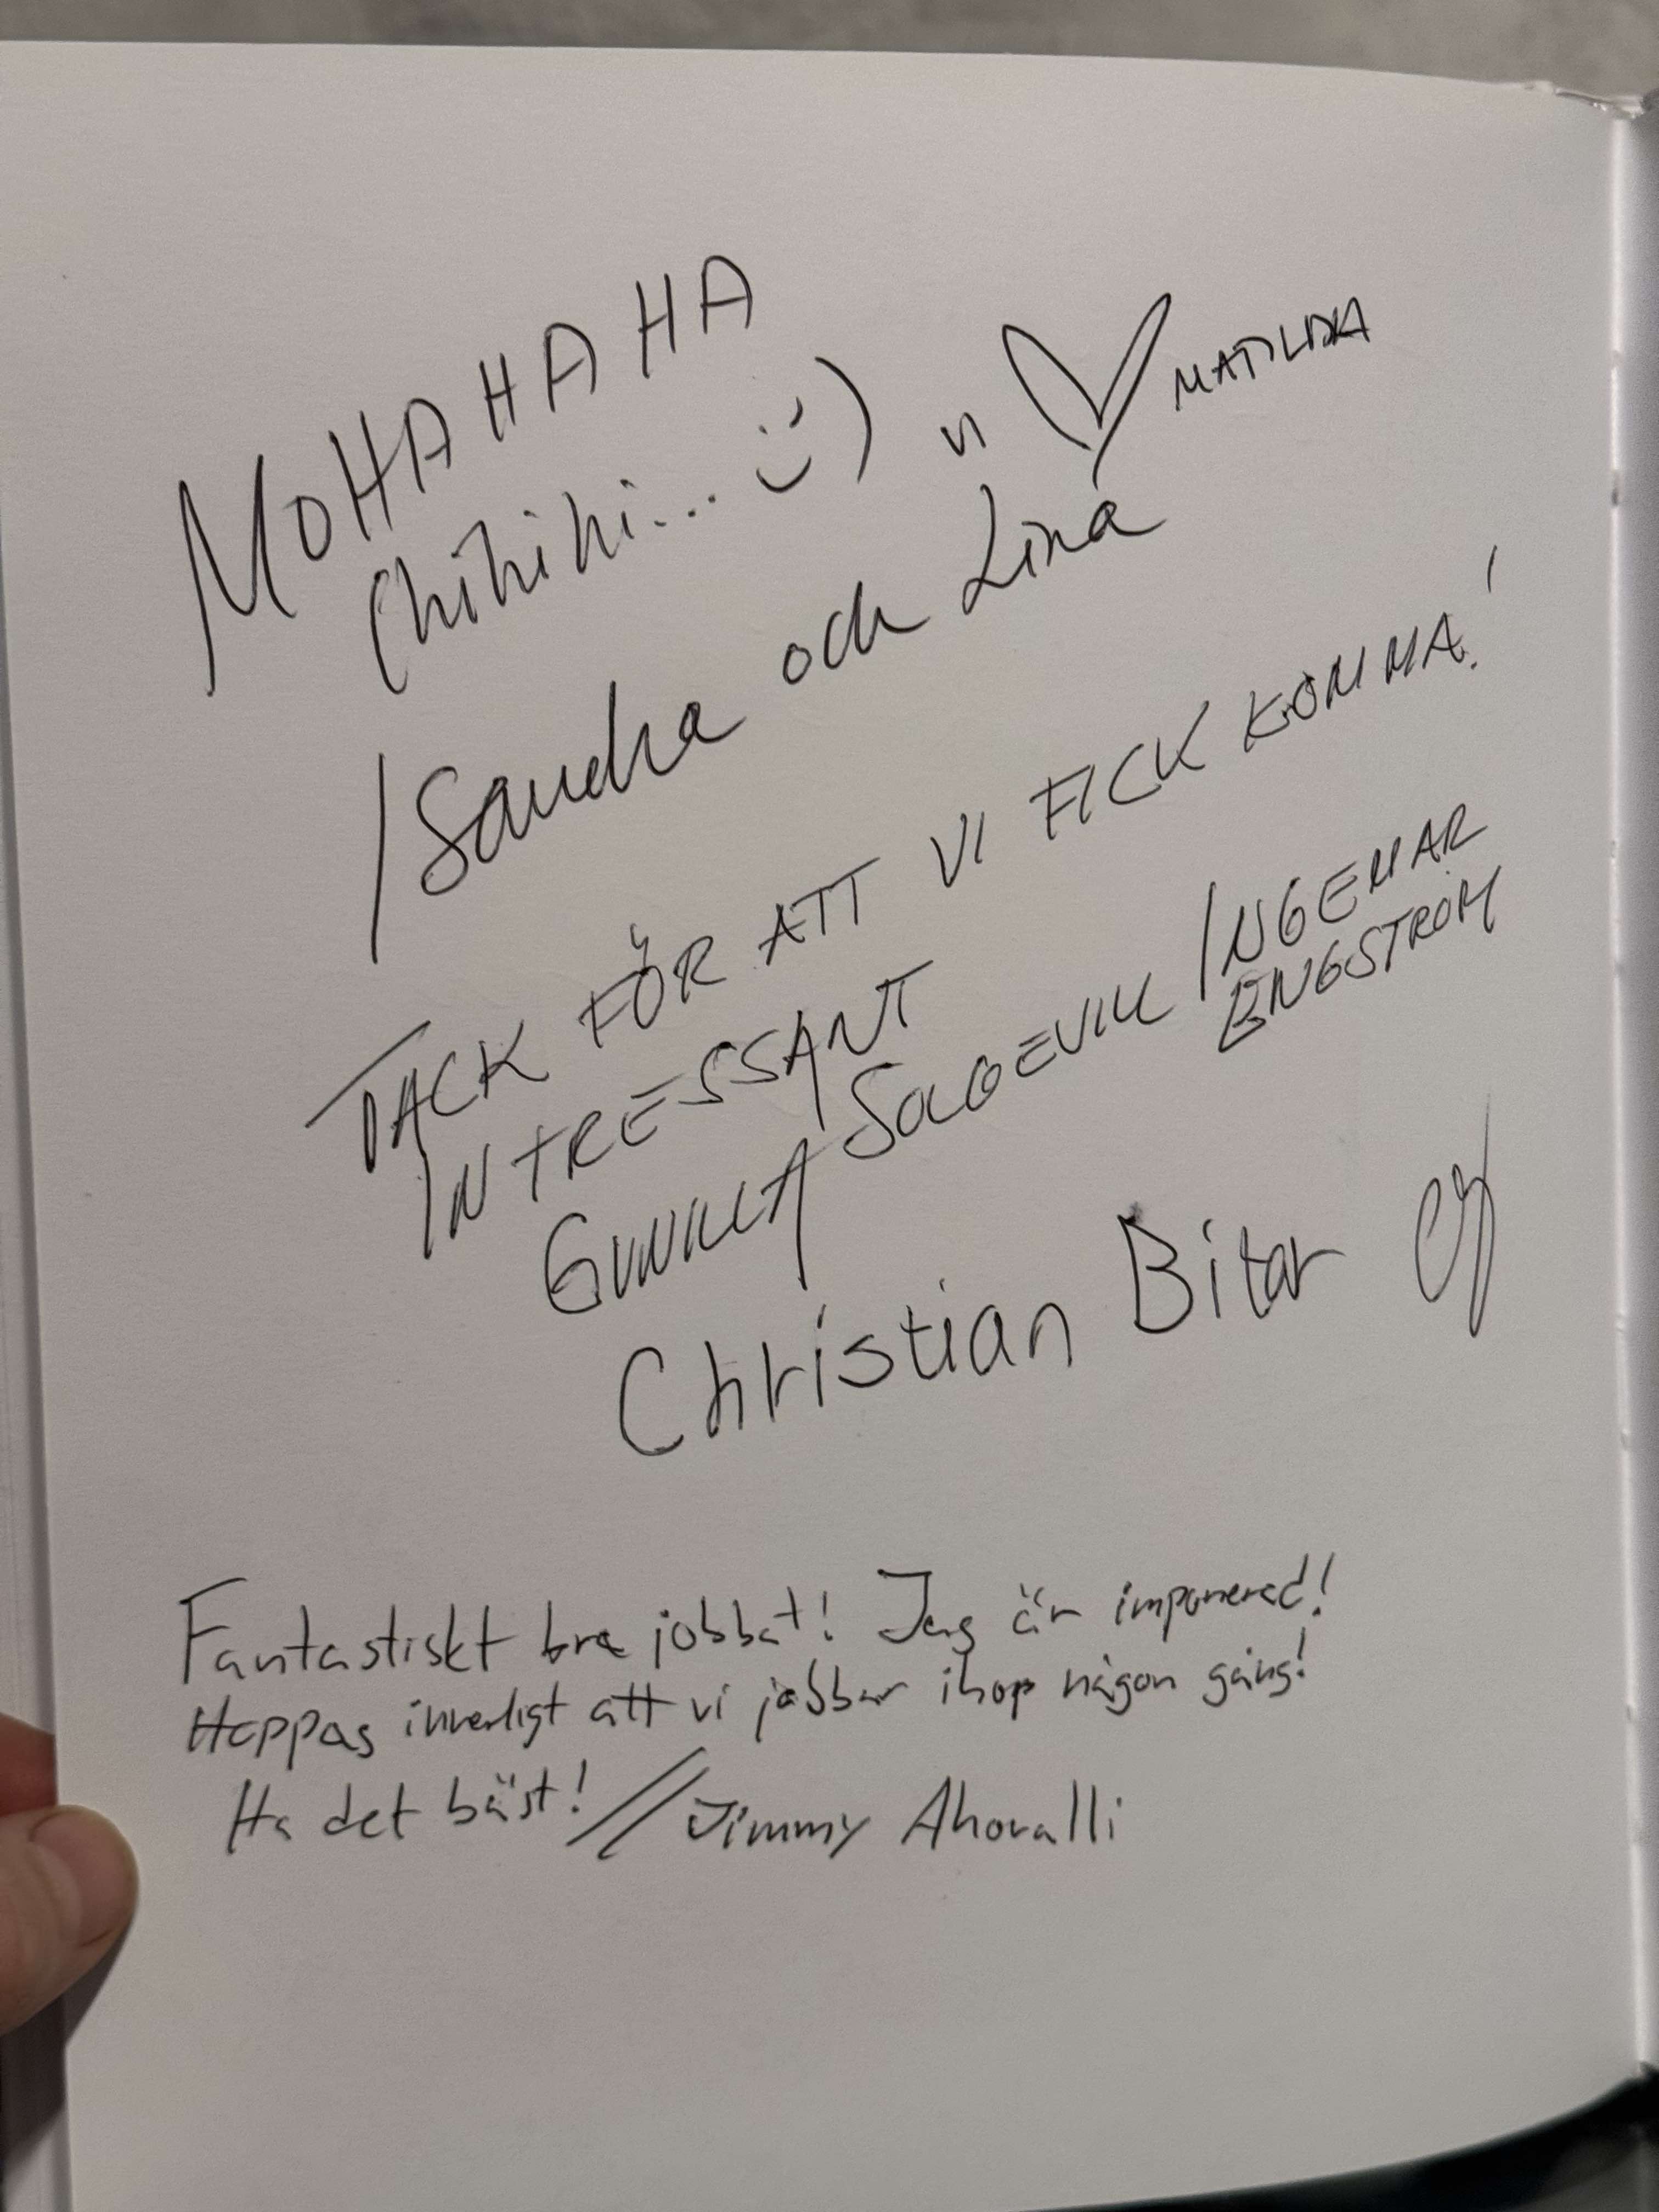 MOHAHAHAHA
(hihihi... :))
vi ♡ MATILDA
/Sandra och Lina
TACK FÖR ATT VI FICK KOMMA!
INTRESSANT
GUNILLA INGEMAR
ENGSTRÖM
Christian Bitar
Fantastiskt bra jobbat! Jag är imponerad!
Hoppas innerligt att vi jobbar ihop någon gång!
Ha det bäst! // Jimmy Ahovalli